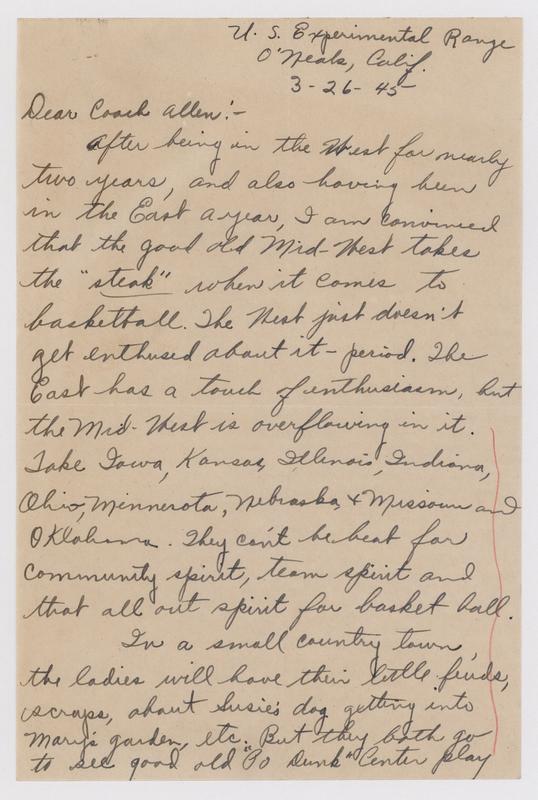 U. S. Experimental Range
O'Neals, Calif.
3-26-45
Dear Coach Allen:-
After being in the West for nearly
two years, and also having been
in the East a year, I am convinced
that the good old Mid-West takes
the "steak" when it comes to
basketball. The West just doesn't
get enthused about it - period. The
East has a touch of enthusiasm, but
the Mid-West is overflowing in it.
Take Iowa, Kansas, Illinois, Indiana,
Ohio, Minnesota, Nebraska, & Missouri and
Oklahoma. They can't be beat for
community spirit, team spirit and
that all out spirit for basket ball.
In a small country town,
the ladies will have their little feuds,
scraps, about Susie's dog getting into
Mary's garden, etc. But they both go
to see good old "Po Dunk" Center play